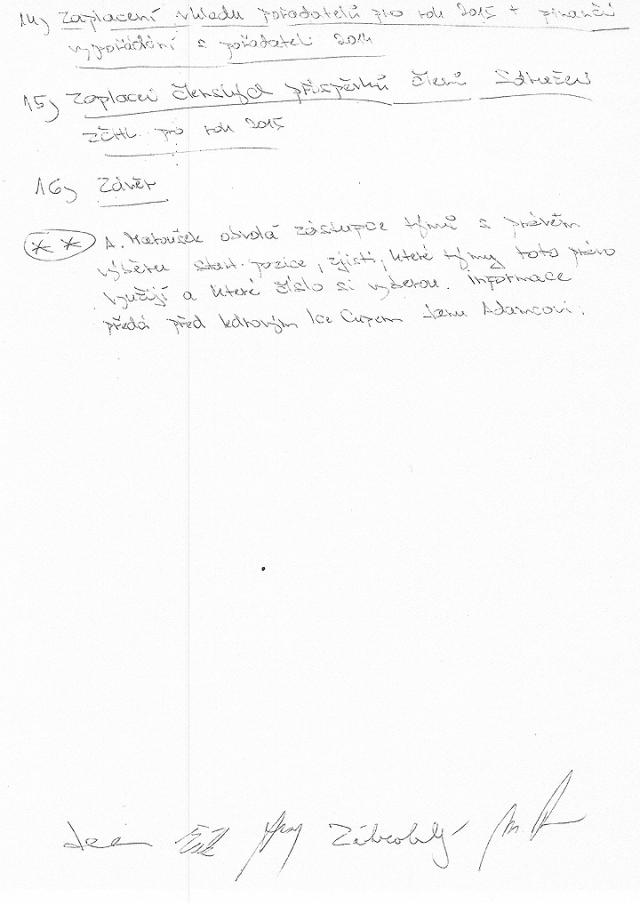 14) Zaplacení vkladu pořadatelů pro rok 2015 + finanční
vypořádání s pořadateli 2014
15) Zaplacení členských příspěvků členů Sdružení
ZČHL pro rok 2015
16) Závěr
** A. Matoušek obvolá zástupce týmů s právem
výběru start. pozice, zjistí, které týmy toto právo
využijí a které číslo si vyberou. Informace
předá před ledovým Ice Cupem Janu Adamcovi.